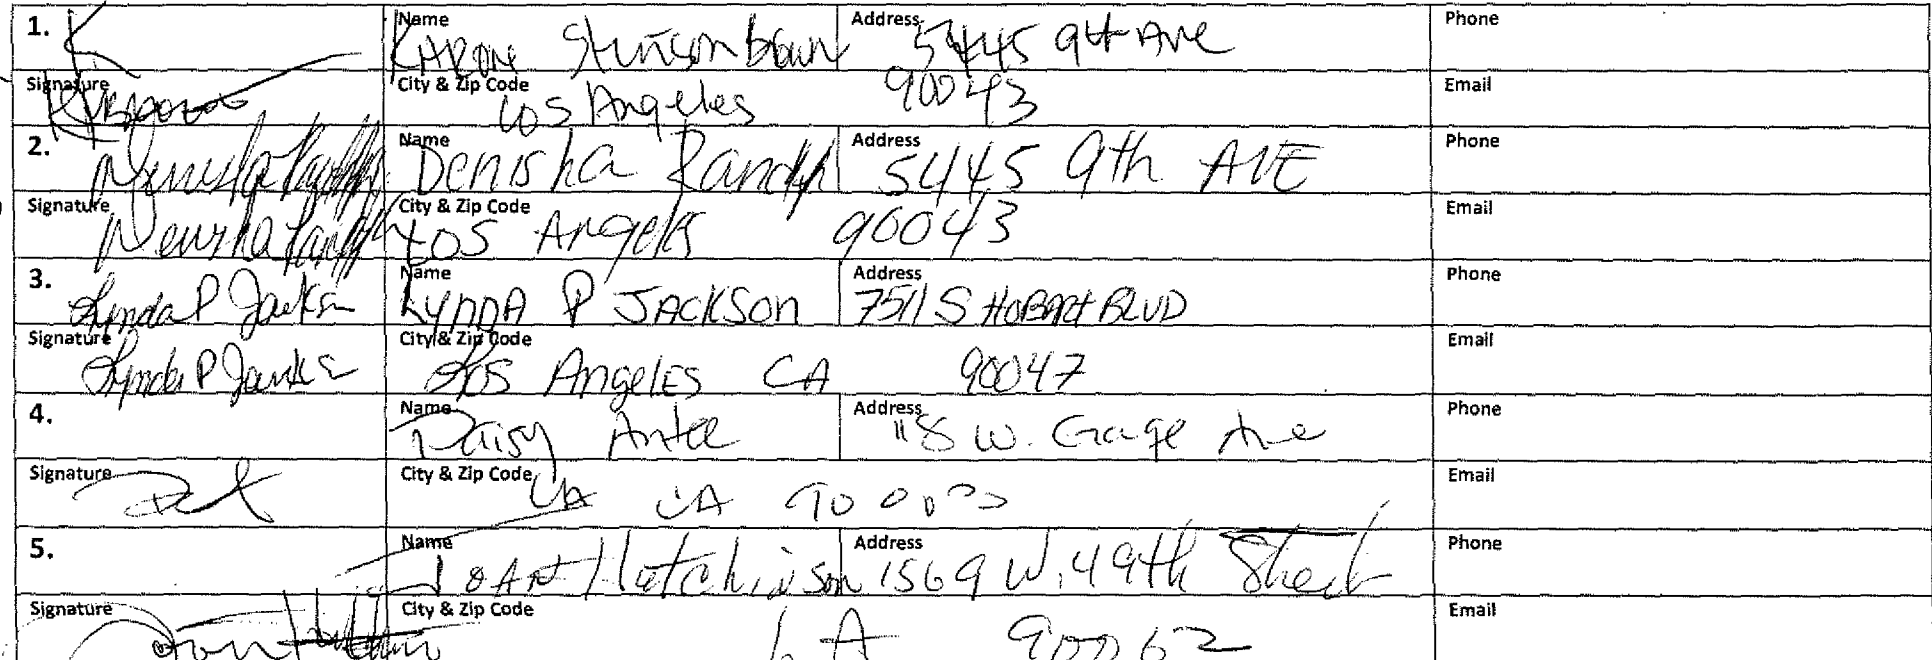 1. Name KARON Stinson brown Address 5445 9th Ave Phone
Signature City & Zip Code Los Angeles 90043 Email
2. Name Denisha Randh Address 5445 9th AVE Phone
Signature City & Zip Code LOS Angeles 90043 Email
3. Lynda P Jackson Name LYNDA P JACKSON Address 7511 S HOBART BLVD Phone
Signature Lynda P Jackson City & Zip Code Los AngelES CA 90047 Email
4. Name Daisy Antee Address 118 W. Gage Ave Phone
Signature City & Zip Code CA Email
5. Name JOAN Hutchinson Address 1569 W. 49th Street Phone
Signature City & Zip Code LA 90062 Email